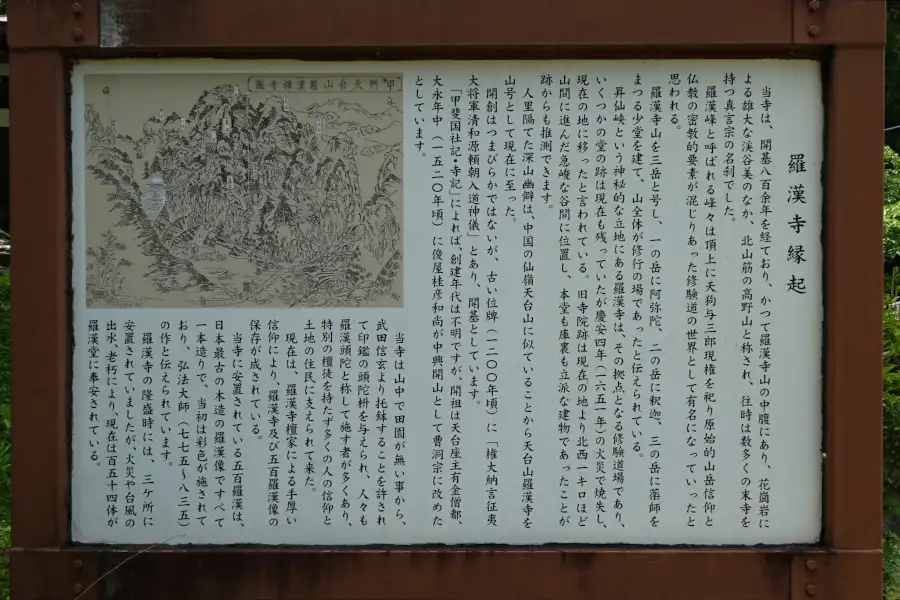 羅漢寺縁起
当寺は、開基八百余年を経ており、かつて羅漢寺山の中腹にあり、花崗岩に
よる雄大な渓谷美のなか、北山筋の高野山と称され、往時は数多くの末寺を
持つ真言宗の名刹でした。
羅漢峰と呼ばれる峰々は頂上に天狗与三郎現権を祀り原始的山岳信仰と
仏教の密教的要素が混じりあった修験道の世界として有名になっていったと
思われる。
羅漢寺山を三岳と号し、一の岳に阿弥陀、二の岳に釈迦、三の岳に薬師を
まつる少堂を建て、山全体が修行の場であったと伝えられている。
昇仙峡という神秘的な立地にある羅漢寺は、その拠点となる修験道場であり、
いくつかの堂の跡は現在も残っていたが慶安四年(一六五一年)の火災で焼失し、
現在の地に移ったと言われている。旧寺院跡は現在の地より北西一キロほど
山間に進んだ急峻な谷間に位置し、本堂も庫裏も立派な建物であったことが
跡からも推測できます。
人里隔てた深山幽僻は、中国の仙嶺天台山に似ていることから天台山羅漢寺を
山号として現在に至った。
開創はつまびらかではないが、古い位牌(一二〇〇年頃)に「権大納言征夷
大将軍清和源頼朝入道神儀」とあり、開基としています。
「甲斐国社記・寺記」によれば、創建年代は不明ですが、開祖は天台座主有金僧都、
大永年中(一五二〇年頃)に俊屋桂彦和尚が中興開山として曹洞宗に改めた
としています。
甲州天台山羅漢禅寺図
当寺は山中で田園が無い事から、
武田信玄より托鉢することを許され
て印鑑の頭陀耕を与えられ、人々も
羅漢頭陀と称して施す者が多くあり、
特別の檀徒を持たず多くの人の信仰と
土地の住民に支えられて来た。
現在は、羅漢寺檀家による手厚い
信仰により、羅漢寺及び五百羅漢像の
保存が成されている。
当寺に安置されている五百羅漢は、
日本最古の木造の羅漢像ですべて
一本造りで、当初は彩色が施されて
おり、弘法大師(七七五〜八三五)
の作と伝えられています。
羅漢寺の隆盛時には、三ケ所に
安置されていましたが、火災や台風の
出水、老朽により、現在は百五十四体が
羅漢堂に奉安されている。